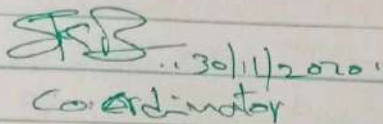 30/11/2020
Coordinator